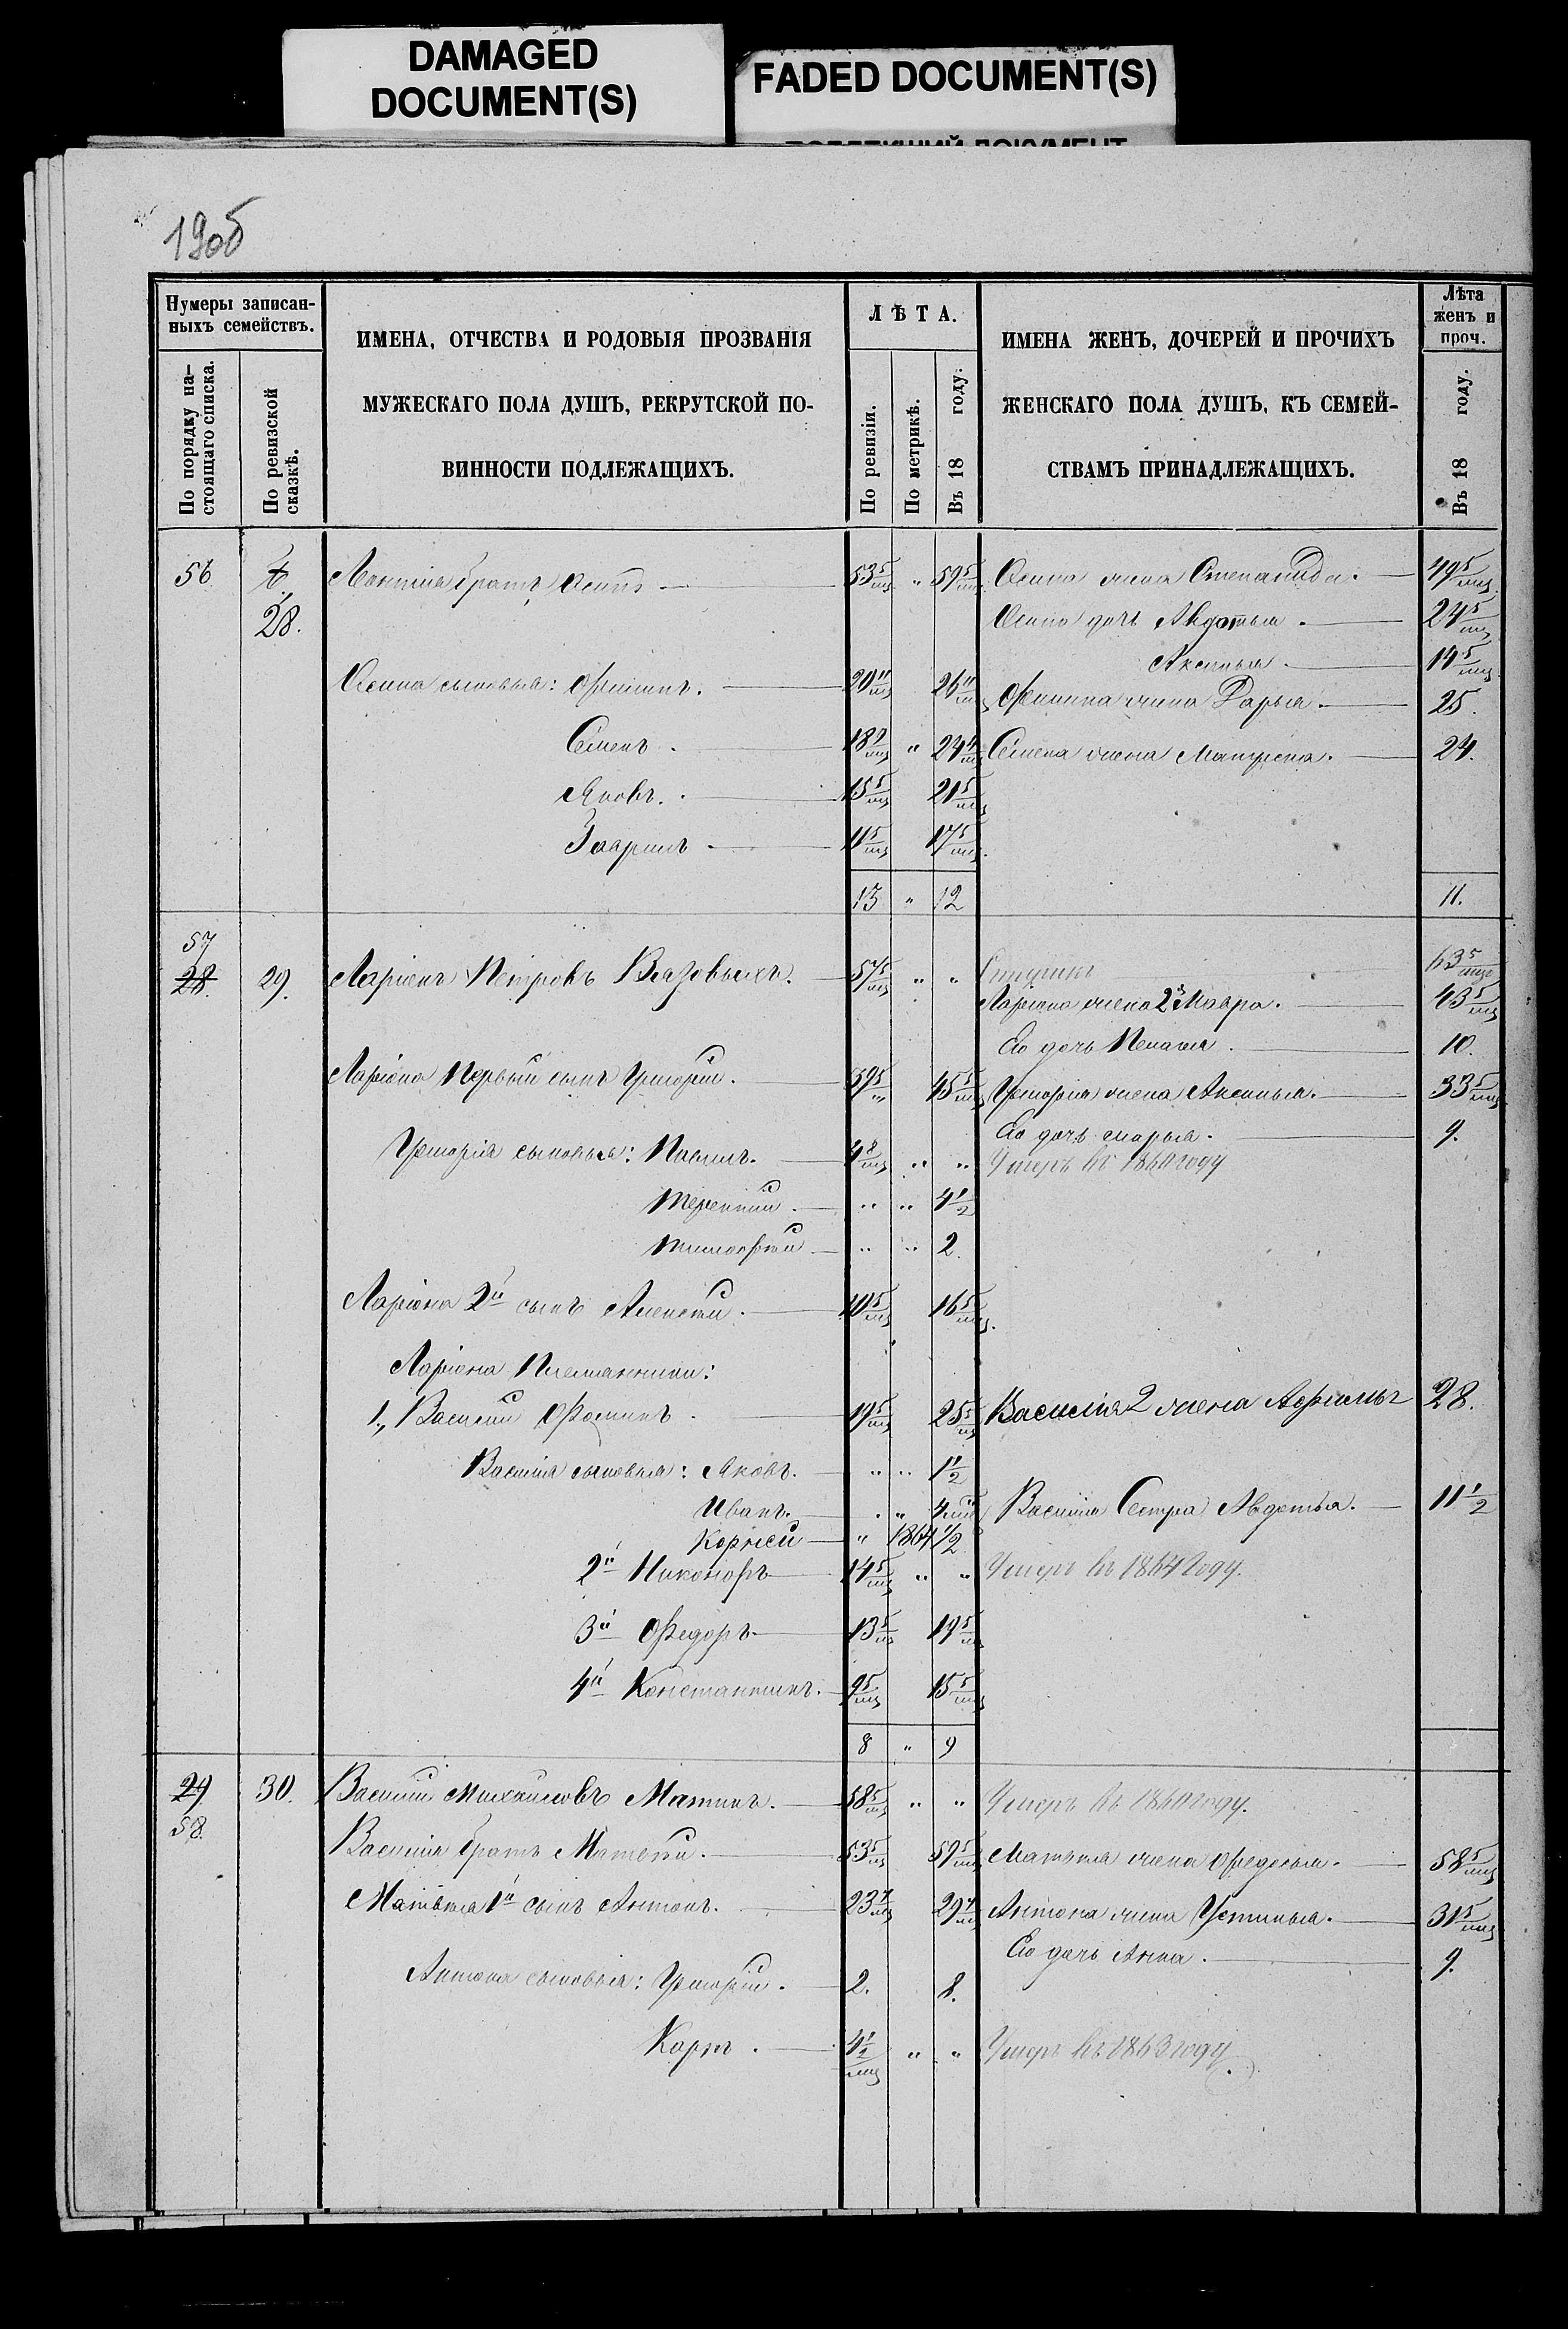 DAMAGED
DOCUMENT(S)
FADED DOCUMENT(S)
190об
Нумеры записан-
ныхъ семействъ.
По порядку на-
стоящаго списка.
По ревизской
сказкѣ.
ИМЕНА, ОТЧЕСТВА И РОДОВЫЯ ПРОЗВАНІЯ
МУЖЕСКАГО ПОЛА ДУШЪ, РЕКРУТСКОЙ ПО-
ВИННОСТИ ПОДЛЕЖАЩИХЪ.
ЛѢТА.
По ревизіи.
По метрикѣ.
Въ 18 году.
ИМЕНА ЖЕНЪ, ДОЧЕРЕЙ И ПРОЧИХЪ
ЖЕНСКАГО ПОЛА ДУШЪ, КЪ СЕМЕЙ-
СТВАМЪ ПРИНАДЛЕЖАЩИХЪ.
Лѣта
женъ и
проч.
Въ 18 году.
56 братъ Осипъ 53 5/мц " 59 5/мц Осипа жена Степанида. 49 5/мц
28. Осипа дочь Авдотья. 24 5/мц
Аксинья. 14 5/мц
Осипа сыновья: Филипъ. 20 11/мц 26 11/мц Филипа жена Дарья. 25.
Семенъ. 18 " 24 Семена жена Матрена. 24.
Яковъ. 15 5/мц 21 5/мц
11 5/мц 17 5/мц
13 " 12 11.
57
28. 29. Ларіонъ Петровъ 57 5/мц " " 63 5/мц
Ларіона жена 2я Мавра. 43 5/мц
Его дочь 10.
Ларіона Первый сынъ Григорій. 39 5/м 45 5/мц Григорія жена Аксинья. 33 5/мц
Его дочь Марья. 9.
Григорія сыновья: 4 8/мц " " Умеръ въ 1860 году
Терентій. " " 4 1/2
Тимофей " " 2.
Ларіона 2й сынъ Алексѣй. 10 5/мц 16 5/мц.
Ларіона Племянники:
1., Василій Фоминъ. 19 5/мц 25 5/мц Василія 2 жена 28.
Василія сыновья: Яковъ. " " 1 1/2
Иванъ. " " 4 мц Василія Сестра Авдотья. 11 1/2
Корней " 1864 1/2
2й Никоноръ 14 5/мц " " Умеръ въ 1864 году.
3й Федоръ 13 5/м 19 5/м
4й Константинъ. 9 5/мц 15 5/мц
8 " 9
29 30. Василій Михаиловъ 58 5/мц " " Умеръ въ 1860 году.
58. Василія братъ Матвей. 53 5/мц 59 5/мц Матвея жена Федосья. 58 5/мц
Матвея 1й сынъ Антонъ. 23 4/мц 29 4/м Антона жена Устинья. 31 5/мц
Его дочь Анна. 9.
Антона сыновья: Григорій. 2. 8.
Карпъ. 4 1/2 мц " " Умеръ въ 1863 году.